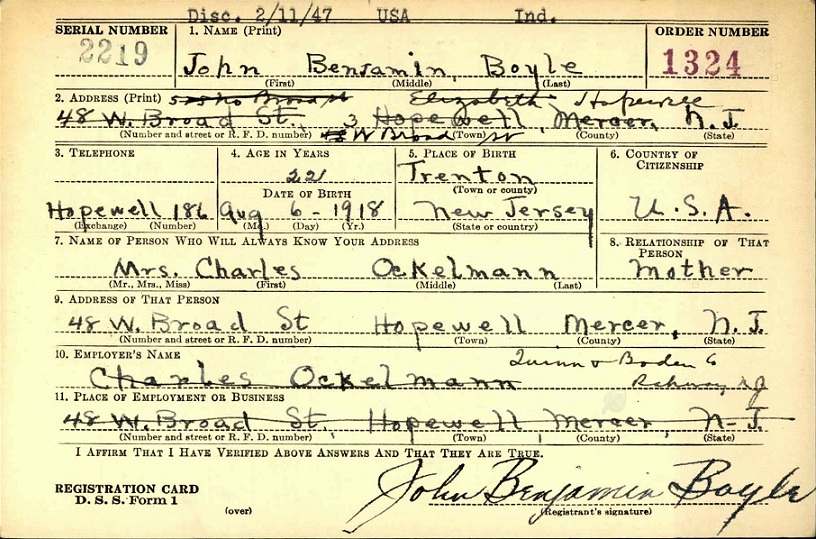 Disc. 2/11/47 USA Ind.
SERIAL NUMBER 1. NAME (Print) ORDER NUMBER
2219 John Benjamin, Boyle 1324
(First) (Middle) (Last)
2. ADDRESS (Print) Broad St Elizabeth Hopewell
48 W. Broad St., 3 Hopewell, Mercer, N.J.
(Number and street or R. F. D. number) 48 W Broad (Town) St (County) (State)
3. TELEPHONE 4. AGE IN YEARS 5. PLACE OF BIRTH 6. COUNTRY OF CITIZENSHIP
22 Trenton
DATE OF BIRTH (Town or county)
Hopewell 186 Aug 6 - 1918 New Jersey U.S.A.
(Exchange) (Number) (Mo.) (Day) (Yr.) (State or country)
7. NAME OF PERSON WHO WILL ALWAYS KNOW YOUR ADDRESS 8. RELATIONSHIP OF THAT PERSON
Mrs. Charles Ockelmann Mother
(Mr., Mrs., Miss) (First) (Middle) (Last)
9. ADDRESS OF THAT PERSON
48 W. Broad St Hopewell Mercer, N.J.
(Number and street or R. F. D. number) (Town) (County) (State)
10. EMPLOYER'S NAME Quinn & Boden Co
Charles Ockelmann Rahway NJ
11. PLACE OF EMPLOYMENT OR BUSINESS
48 W. Broad St., Hopewell Mercer, N-J.
(Number and street or R. F. D. number) (Town) (County) (State)
I AFFIRM THAT I HAVE VERIFIED ABOVE ANSWERS AND THAT THEY ARE TRUE.
REGISTRATION CARD John Benjamin Boyle
D. S. S. Form 1 (over) (Registrant's signature)